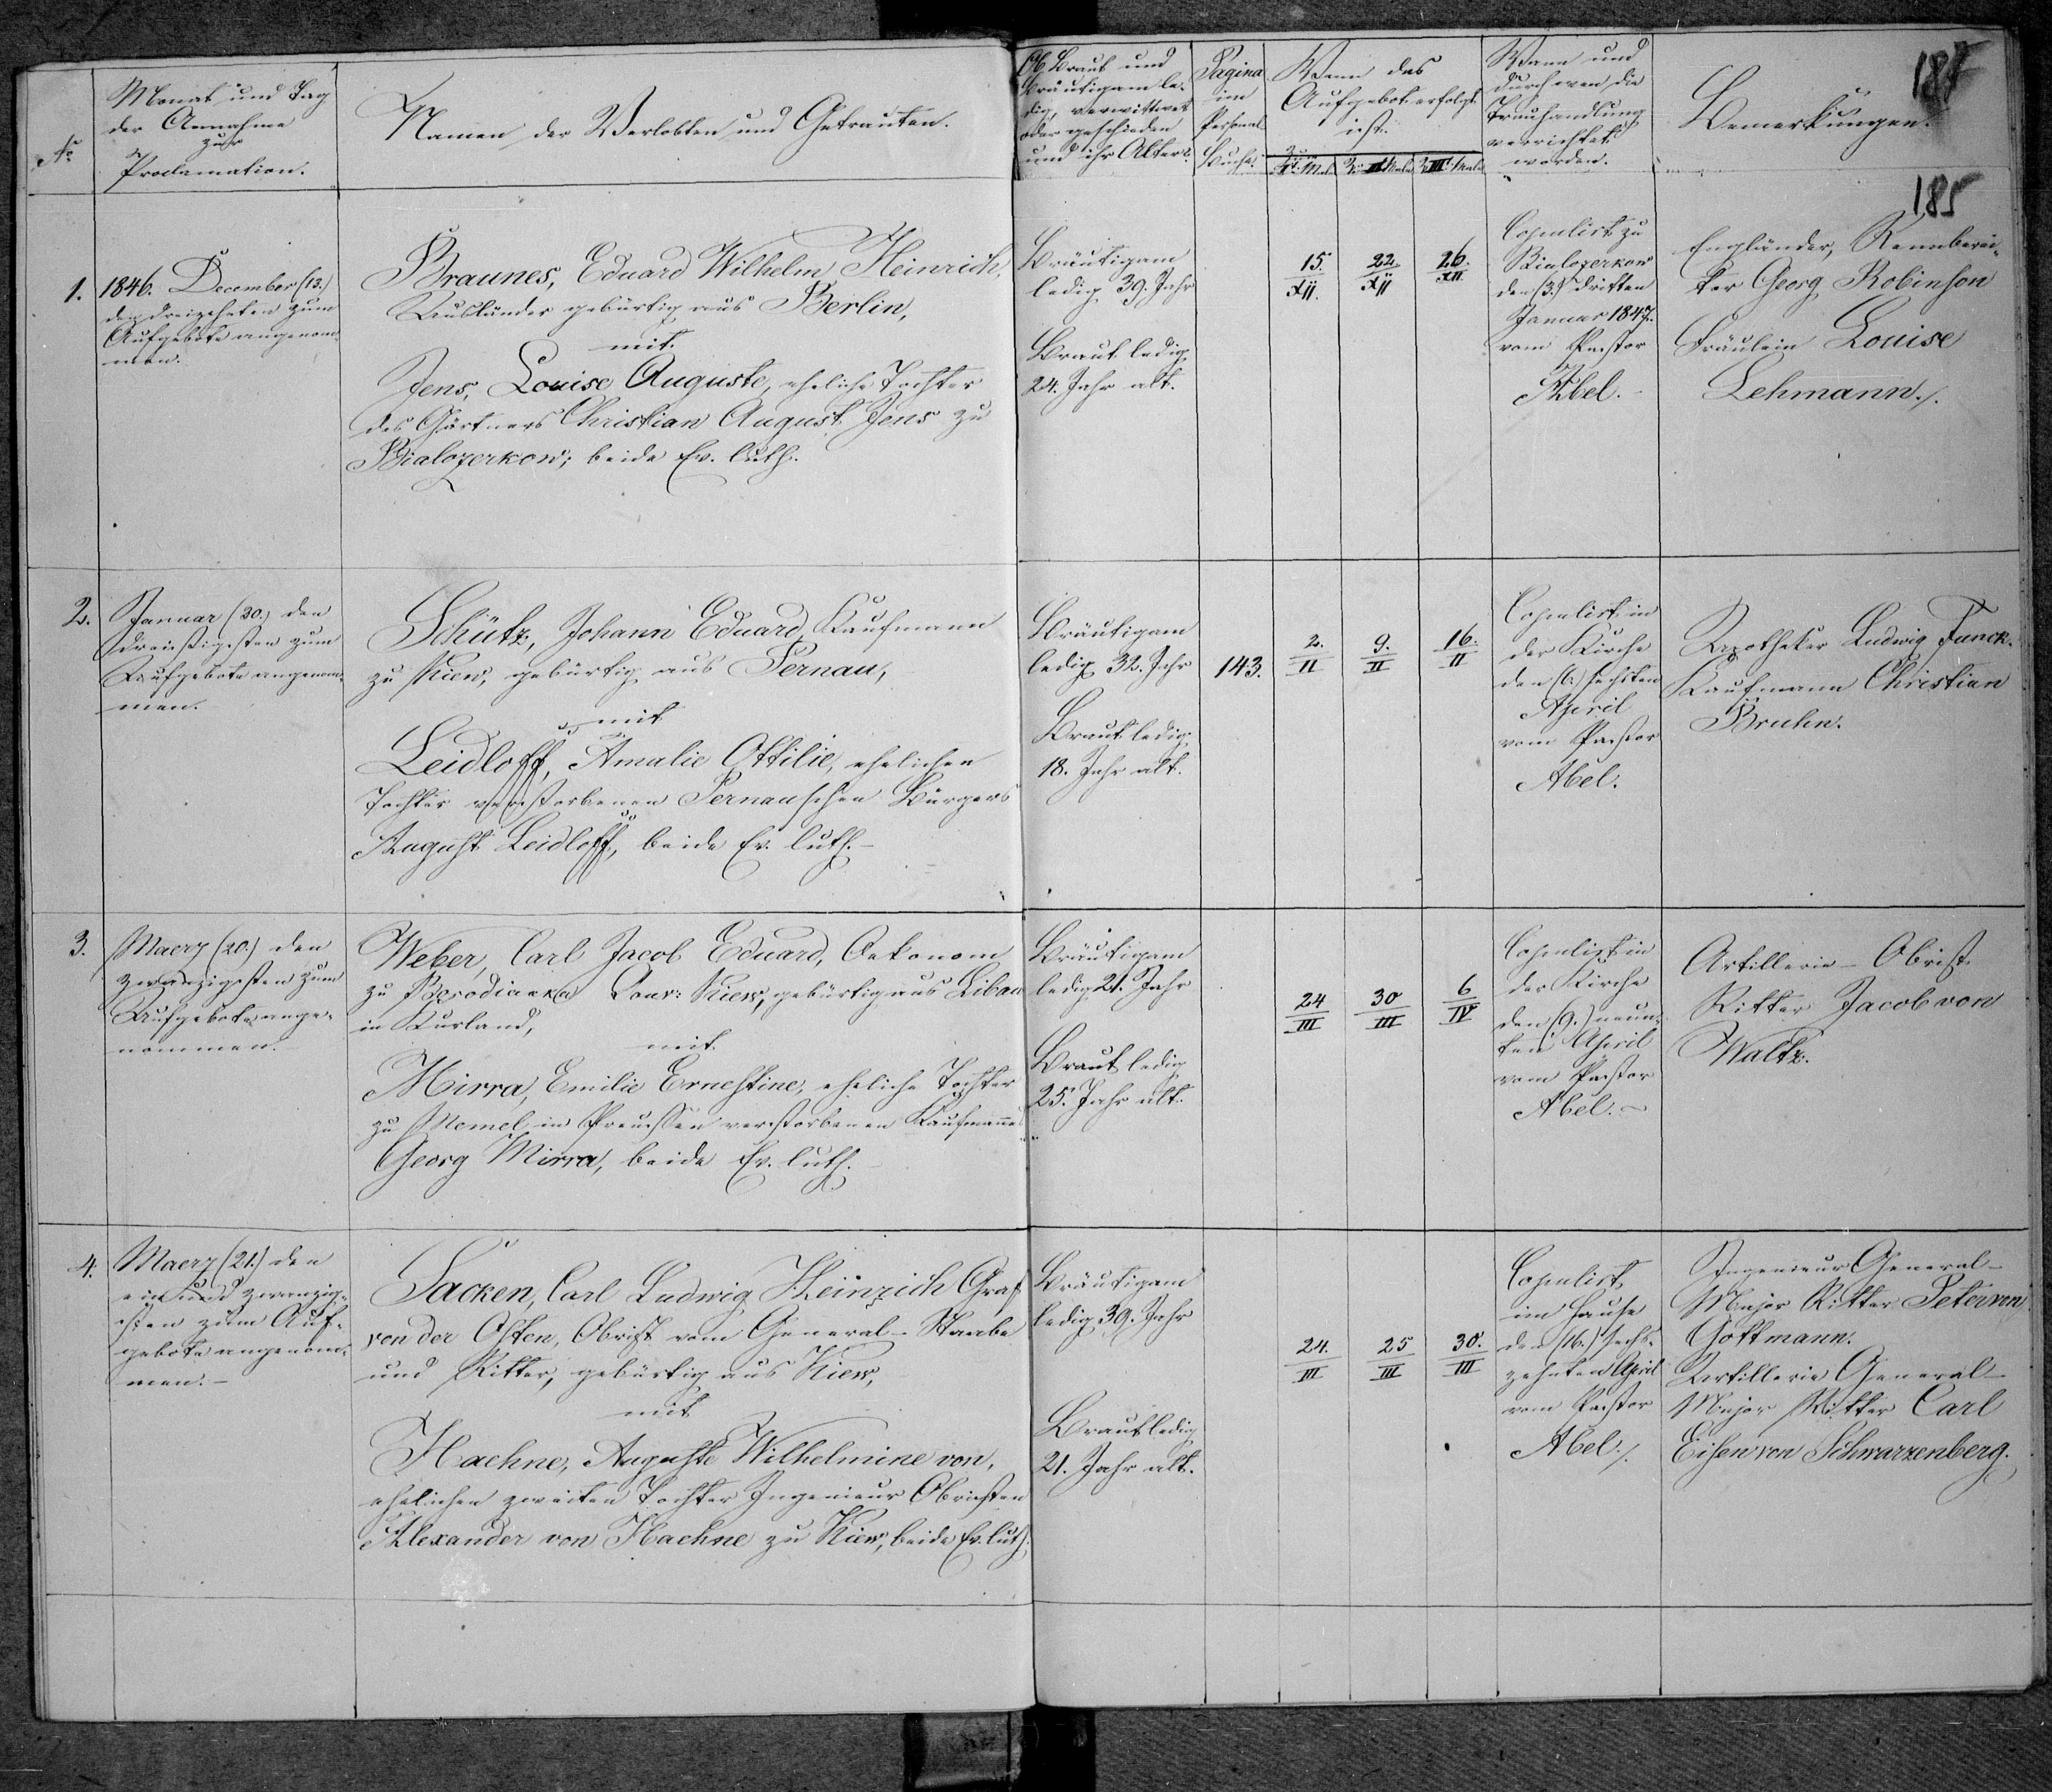 №
Monat und Tag
der Annahme
zur
Proclamation.
Namen der Verlobten und Getrauten.
Ob Braut und
Bräutigam le-
dig, verwittwet
oder geschieden
und ihr Alter.
Pagina
im
Personal
Buche.
Wann das
Aufgebot erfolgt
ist.
Zum I. Mal. Zum II Male Zum III Male
Wann und
durch wen die
Trauhandlung
verrichtet
worden.
Bemerkungen.
187
185
1.
1846. December (13.)
den dreizehnten zum
Aufgebote angenom-
men.
Braunes, Eduard Wilhelm Heinrich,
Ausländer gebürtig aus Berlin,
mit
Jens, Louise Auguste, eheliche Tochter
des Gärtners Christian August Jens zu
Bialozerkow; beide Ev. luth.
Bräutigam
ledig 39. Jahr
Braut ledig
24. Jahr alt.
15. XII. 22. XII 26. XII.
Copulirt zu
Bialozerkow
den (3.) dritten
Januar 1847.
vom Pastor
Abel.
Engländer, Rennberei-
ter Georg Robinson
Fräulein Louise
Lehmann./.
2.
Januar (30.) den
dreißigsten zum
Aufgebote angenom-
men.
Schütz, Johann Eduard, Kaufmann
zu Kiew, gebürtig aus Pernau,
mit
Leidloff, Amalie Ottilie, ehelichen
Tochter verstorbenen Pernauschen Bürgers
August Leidloff, beide Ev. luth.-
Bräutigam
ledig 32. Jahr
Braut ledig
18. Jahr alt.
143.
2. II 9. II 16. II
Copulirt in
der Kirche
den (6.) sechsten
April
vom Pastor
Abel.
Apotheker Ludwig Funck.
Kaufmann Christian
Bruhn.
3.
Maerz (20.) den
zwanzigsten zum
Aufgebote ange-
nommen.
Weber, Carl Jacob Eduard, Oekonom
zu Borodianka Gouv: Kiew, gebürtig aus Libau
in Kurland,
mit
Mirra, Emilie Ernestine, eheliche Tochter
zu Memel in Preussen verstorbenen Kaufmanns
Georg Mirra, beide Ev. luth.
Bräutigam
ledig 21. Jahr
Braut ledig
25. Jahr alt.
24 III 30 III 6 IV
Copulirt in
der Kirche
den (9.) neun-
ten April
vom Pastor
Abel.-
Artillerie-Obrist
Ritter Jacob von
Waltz.
4.
Maerz (21.) den
ein und zwanzig-
sten zum Auf-
gebote angenom-
men.-
Sacken, Carl Ludwig Heinrich Graf
von der Osten, Obrist vom General-Staabe
und Ritter, gebürtig aus Kiew,
mit
Haehne, Auguste Wilhelmine von,
ehelichen zweiten Tochter Ingenieur Obristen
Alexander von Haehne zu Kiew, beide Ev. luth.
Bräutigam
ledig 39. Jahr
Braut ledig
21. Jahr alt.
24. III 25 III 30. III
Copulirt
im Hause
den (16.) sechs-
zehnten April
vom Pastor
Abel./.
Ingenieur General-
Major Ritter Peter von
Gottmann.
Artillerie General-
Major Ritter Carl
Eisen von Schwarzenberg.